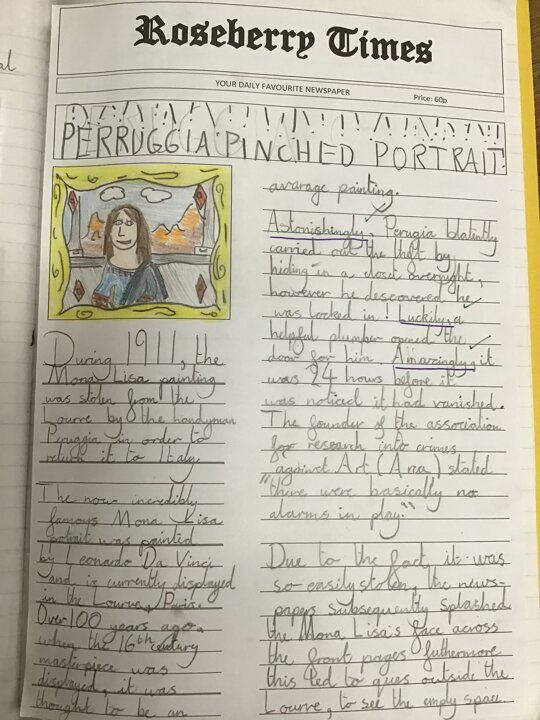 al
Roseberry Times
YOUR DAILY FAVOURITE NEWSPAPER
Price: 60p
PERRUGGIA PINCHED PORTRAIT
During 1911, the
Mona Lisa painting
was stolen from the
Lourve by the handyman
Peruggia in order to
return it to Italy.
The now incredibly
famous Mona Lisa
portrait was painted
by Leonardo Da Vinci
and is currently displayed
in the Lourve, Paris.
Over 100 years ago,
when the 16th century
masterpiece was
displayed, it was
thought to be an
avarage painting.
Astonishingly, Perugia blatintly
carried out the theft by
hiding in a closet overnight,
however he descovered he
was locked in! Luckily, a
helpful plumber opened the
door for him. Amazingly, it
was 24 hours before it
was noticed it had vanished.
The founder of the association
for research into crimes
against Art (Arca) stated
"there were basically no
alarms in play."
Due to the fact it was
so easily stolen, the news-
papers subsequently splashed
the Mona Lisa's face across
the front pages futhermore
this led to ques outside the
Lourve, to see the empy space